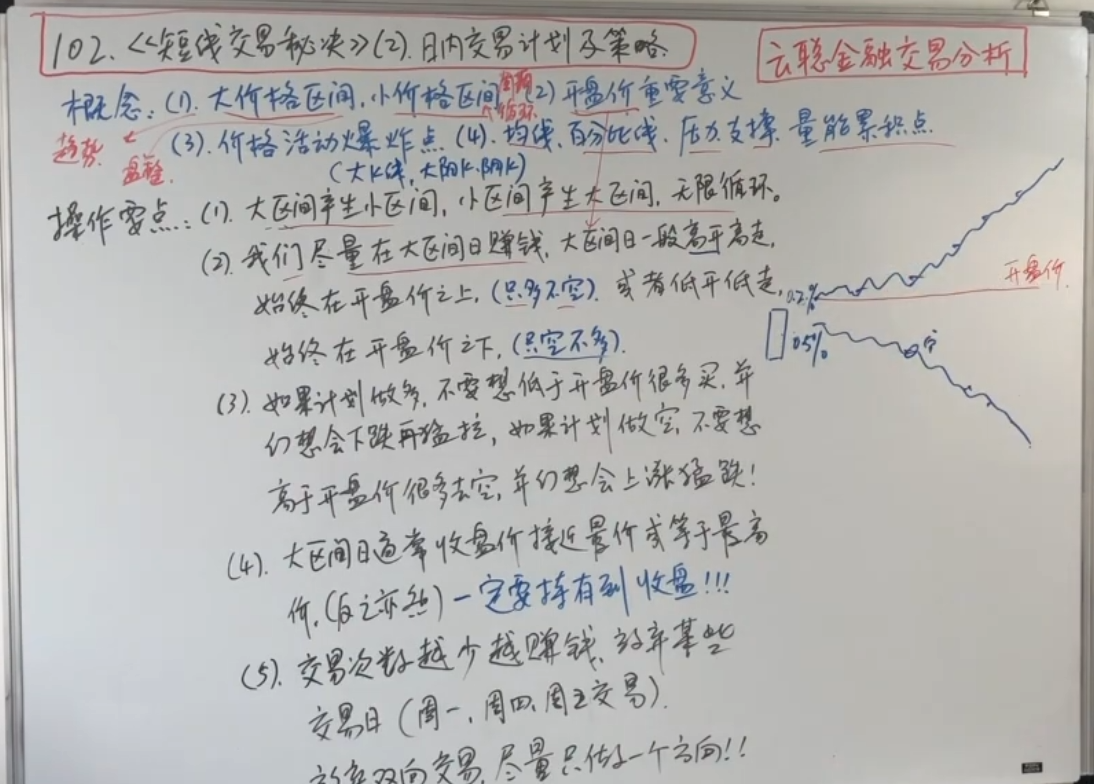 102.《短线交易秘决》(2).日内交易计划及策略.
云聪金融交易分析
概念:(1).大价格区间,小价格区间 (2)开盘价重要意义
周期
循环
趋势
盘整.
(3).价格活动爆炸点 (4).均线、百分比线、压力支撑、量能累积点
(大K线,大阳K.阴K)
操作要点:(1).大区间产生小区间,小区间产生大区间,无限循环。
(2).我们尽量在大区间日赚钱,大区间日一般高开高走,
始终在开盘价之上,(只多不空).或者低开低走,
始终在开盘价之下,(只空不多).
0.2%
开盘价
0.5%
空
(3).如果计划做多,不要想低于开盘价很多买,并
幻想会下跌再猛拉,如果计划做空,不要想
高于开盘价很多去空,并幻想会上涨猛跌!
(4).大区间日通常收盘价接近最价或等于最高
价,(反之亦然)一定要持有到收盘!!!
(5).交易次数越少越赚钱,放弃某些
交易日(周一、周四、周五交易).
放弃双向交易,尽量只做一个方向!!